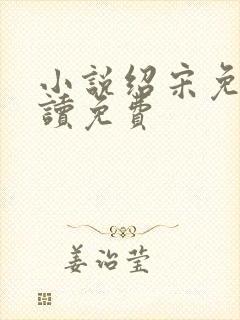 小說紹宋免
讀免費
姜治莹